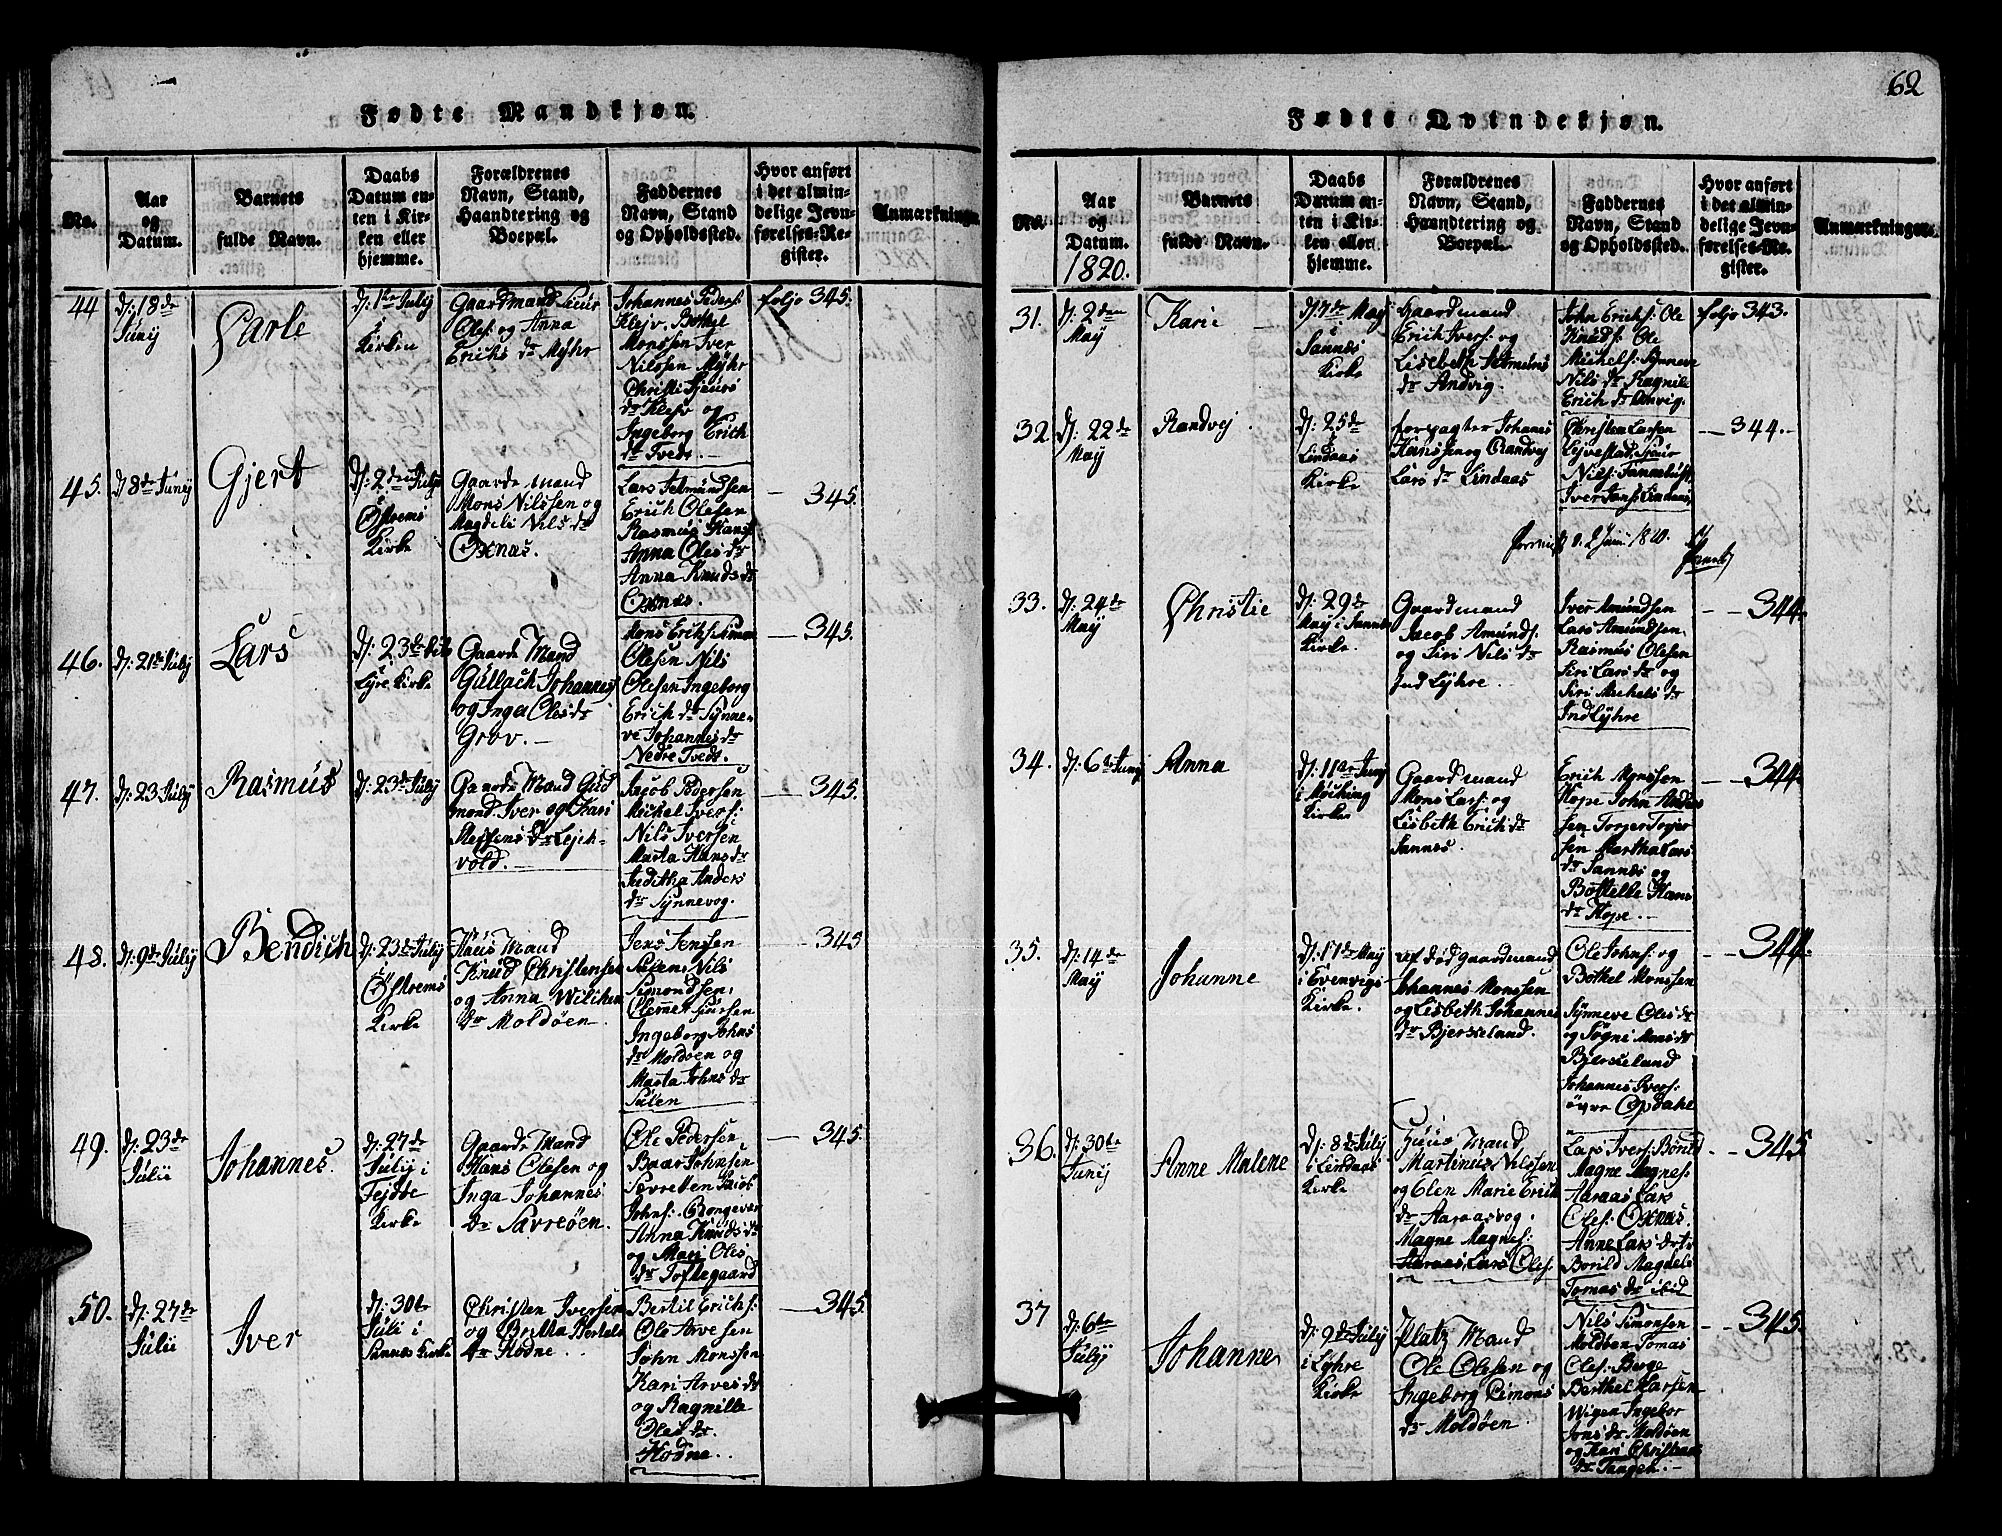 Fødte Mandkjøn.
No.
Aar
og
Datum.
Barnets
fulde Navn.
Daabs
Datum en-
ten i Kir-
ken eller
hjemme.
Forældrenes
Navn, Stand,
Haandtering og
Boepæl.
Faddernes
Navn, Stand
og Opholdssted.
Hvor anført
i det almin-
delige Jevn-
førelses-Re-
gister.
Anmærkninger.
44
d: 18de
Juny
d: 1ste July
Kirken
Gaardmand
Oles: og Anna
Erichs dr Myhr
Johannes Peders:
Klejv. Bothel
Monssen Iver
Nilssen Myhr
Christi
dr Klejv og
Ingeborg Erich
dr Tvedt.
foljo 345.
45.
d: 8de Juny
Gjert
d: 2den July
Østrems
Kirke
Gaarde mand
Mons Nilssen og
Magdeli Nils dr
Oxnas.
Lars Helmundsen
Erich Olesen
Rasmus Hans:
Anna Oles dr
Anna Knuds dr
Oxnas.
345.
46.
d: 21de July
Lars
d: 23de July
Lyre Kirke
Gaarde Mand
Gullach Johannes
og Inger Oles dr
Grov.
Mons Eriks: Simon
Olesen Nils
Olesen Ingeborg
Erich dr Synne-
ve Johannes dr
Nedre Tvedt.
345.
47.
d: 23 July
Rasmus
d: 23de July
Gaarde Mand Gud
mond Iver og Kari
Steffens dr Lejch-
vold.
Jacob Pedersen
Michel Ivers:
Nils Iversen
Marta Hans dr
Juditha Anders
dr Synnevog.
345.
48.
d: 9de July
Bendich
d: 23de July
i
Østrems
Kirke
Huus Mand
Knud Christensen
og Anna Wilchen
dr Moldøen.
Jens Jenssen
Sulen, Nils
Simondsen,
Clemet
Ingeborg Johns
dr Moldøen og
Marta Johns dr
Sulen
345
49.
d: 23de
Julii
Johannes.
d: 27de
July i
Fejde
Kirke
Gaarde Mand
Hans Olesen og
Inga Johannes
dr Savreøen.
Ole Pedersen
Baar Johnsen
Sevretten Jacob
Johns:
Anna Knuds dr
og Mari Oles
dr Toftegaard
345.
50.
d: 27de
Julii
Iver
d: 30te
Juli i
Sannes Kirke
Christen Iversen
og Britha Bertels
dr Hodne.
Bertil Erichs:
Ole Arvesen
John Monssen
Kari Arves dr
og Ragnille
Oles dr
Hodne.
345.
62
Fødte Qvindekjøn.
No.
Aar
og
Datum.
1820.
Barnets
fulde Navn.
Daabs
Datum en-
ten i Kir-
ken eller
hjemme.
Forældrenes
Navn, Stand,
Haandtering og
Boepæl.
Faddernes
Navn, Stand
og Opholdssted.
Hvor anført
i det almin-
delige Jevn-
førelses-Re-
gister.
Anmærkninger.
31.
d: 2den
May
Karie
d: 7de May
i
Sannes
Kirke
Gaardmand
Erich Ivers: og
Lisebeth Helmuns
dr Andvig.
John Erichs: Ole
Knuds: Ole
Michels: Synneve
Nils dr Ragnile
Erich dr Anvig.
foljo 343.
32.
d: 22de
May
Randvej
d: 25de
i
Lindaas
Kirke
forpagter Johanes
Hanssen og Randvej
Lars dr Lindaas
Christen Larsen
Nils:
Iver Jans: Lindaas
344.
d. 2 Juni 1820.
33.
d: 24de
May
Christie
d: 29de
May i Sannes
Kirke.
Gaardmand
Jacob Amunds:
og Siri Nils dr
Ind Lyhre.
Iver Amundsen
Lars Amundsen,
Rasmus Olesen
Siri Lars dr og
Siri Michels dr
Ind Lyhre
344.
34.
d: 6te Juny
Anna
d: 11te Juny
i
Kirke
Gaardmand
Mons Lars: og
Lisbeth Erich dr
Sannes.
Erich Monssen
Hope John Anders
sen Torger Torger
sen Martha Lars
dr Sannes og
Bothelle Hans
dr Hope.
344.
35.
d: 14de
May
Johanne
d: 17de May
i Evenvigs
Kirke.
Johannes Monssen
og Lisbeth Johannes
dr Bjerkeland.
Ole Johns: og
Bothel Monssen
Synneve Oles dr
og Søgni Mons dr
Bjerkeland
Johannes Ivers:
øvre Opdahl
344.
36.
d: 30te
Juny
Anne Malene
d: 8de July
i Lindaas
Kirke
Huus Mand
Martinus Nilssen
og Elen Marie Erich
dr Aaraasvog.
Magne Magnes:
Aaraas, Lars Oles:
Lars Ivers: Børild
Magne Magnes:
Aaraas Lars
Oles: Oxnas.
Anne Lars
Borild Magdeli
Tomas dr ibid
345
37
d: 6te
July
Johanne
d: 9de July
i Lyhre
Kirke
Platz Mand
Ole Olesen og
Ingeborg Simons
dr Moldøen
Nils Simonsen
Moldøen Tomas
Oles: Berge
Berthel Larsen
Wigen Ingebor
Jons dr Moldøen
og Kari Christians
dr Tangen.
345.